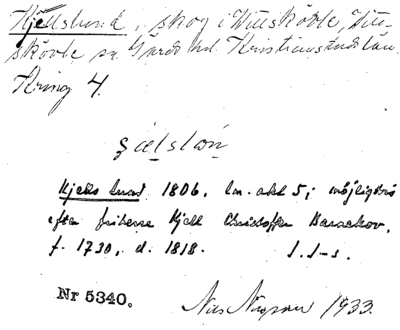 Kjellslund, skog i Vittskövle, Vitt-
skövle sn. Gärds hd. Kristianstads län.
Kring 4.
Kjells lund. 1806, lm. akt 5; möjligtvis
efter friherre Kjell Christoffer Barnekow,
f. 1730, d. 1818. J. J-s.
Nr 5340. Nils 1933.